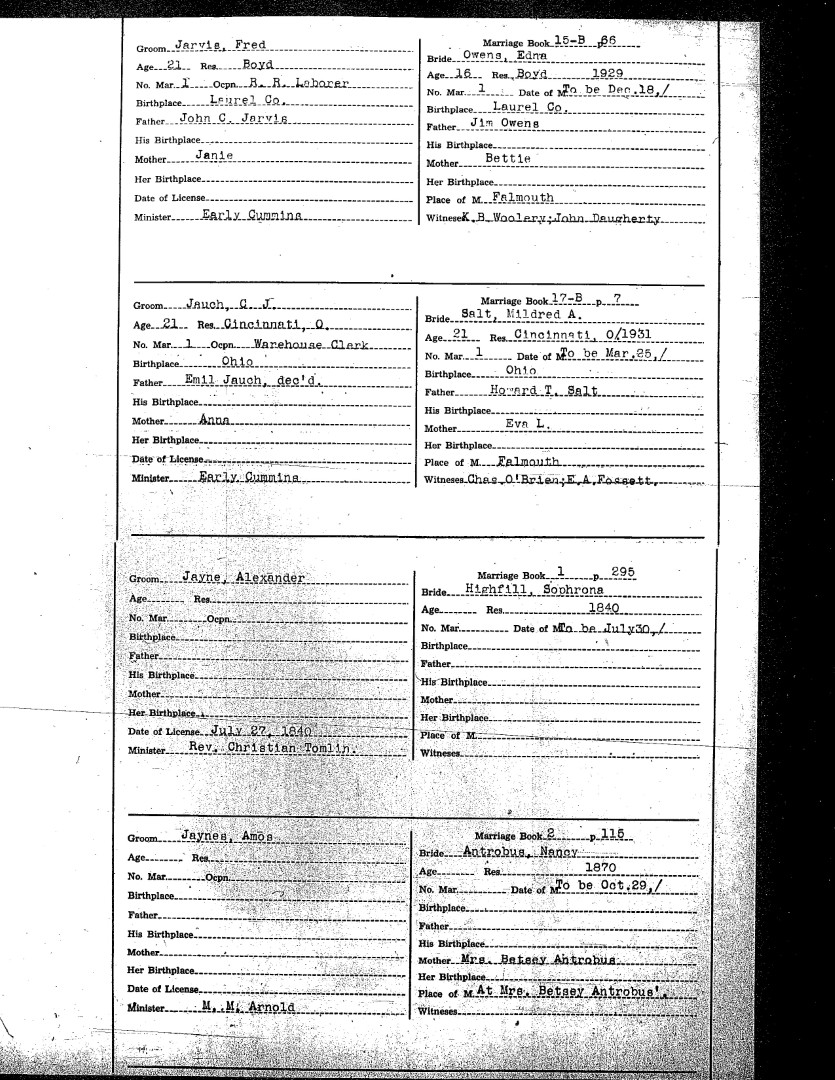 Groom Jarvis, Fred
Age 21 Res. Boyd
No. Mar. 1 Ocpn. R. R. Laborer
Birthplace Laurel Co.
Father John C. Jarvis
His Birthplace
Mother Janie
Her Birthplace
Date of License
Minister Early Cummins
Marriage Book 15-B p. 66
Bride Owens, Edna
Age 16 Res. Boyd 1929
No. Mar. 1 Date of M. To be Dec.18,/
Birthplace Laurel Co.
Father Jim Owens
His Birthplace
Mother Bettie
Her Birthplace
Place of M. Falmouth
Witnesses K.B.Woolery;John Daugherty
Groom Jauch, C. J.
Age 21 Res. Cincinnati, O.
No. Mar. 1 Ocpn. Warehouse Clark
Birthplace Ohio
Father Emil Jauch, dec'd.
His Birthplace
Mother Anna
Her Birthplace
Date of License
Minister Early Cummins
Marriage Book 17-B p. 7
Bride Salt, Mildred A.
Age 21 Res. Cincinnati, O/1931
No. Mar. 1 Date of M. To be Mar.25,/
Birthplace Ohio
Father Howard T. Salt
His Birthplace
Mother Eva L.
Her Birthplace
Place of M. Falmouth
Witnesses Chas.O'Brien;E.A.Fossett.
Groom Jayne, Alexander
Age Res.
No. Mar. Ocpn.
Birthplace
Father
His Birthplace
Mother
Her Birthplace
Date of License July 27, 1840
Minister Rev. Christian Tomlin.
Marriage Book 1 p. 295
Bride Highfill, Sophrona
Age Res. 1840
No. Mar. Date of M. To be July30,/
Birthplace
Father
His Birthplace
Mother
Her Birthplace
Place of M.
Witnesses
Groom Jaynes, Amos
Age Res.
No. Mar. Ocpn.
Birthplace
Father
His Birthplace
Mother
Her Birthplace
Date of License
Minister M. M. Arnold
Marriage Book 2 p. 115
Bride Antrobus, Nancy
Age Res. 1870
No. Mar. Date of M. To be Oct.29,/
Birthplace
Father
His Birthplace
Mother Mrs. Betsey Antrobus
Her Birthplace
Place of M. At Mrs. Betsey Antrobus'.
Witnesses